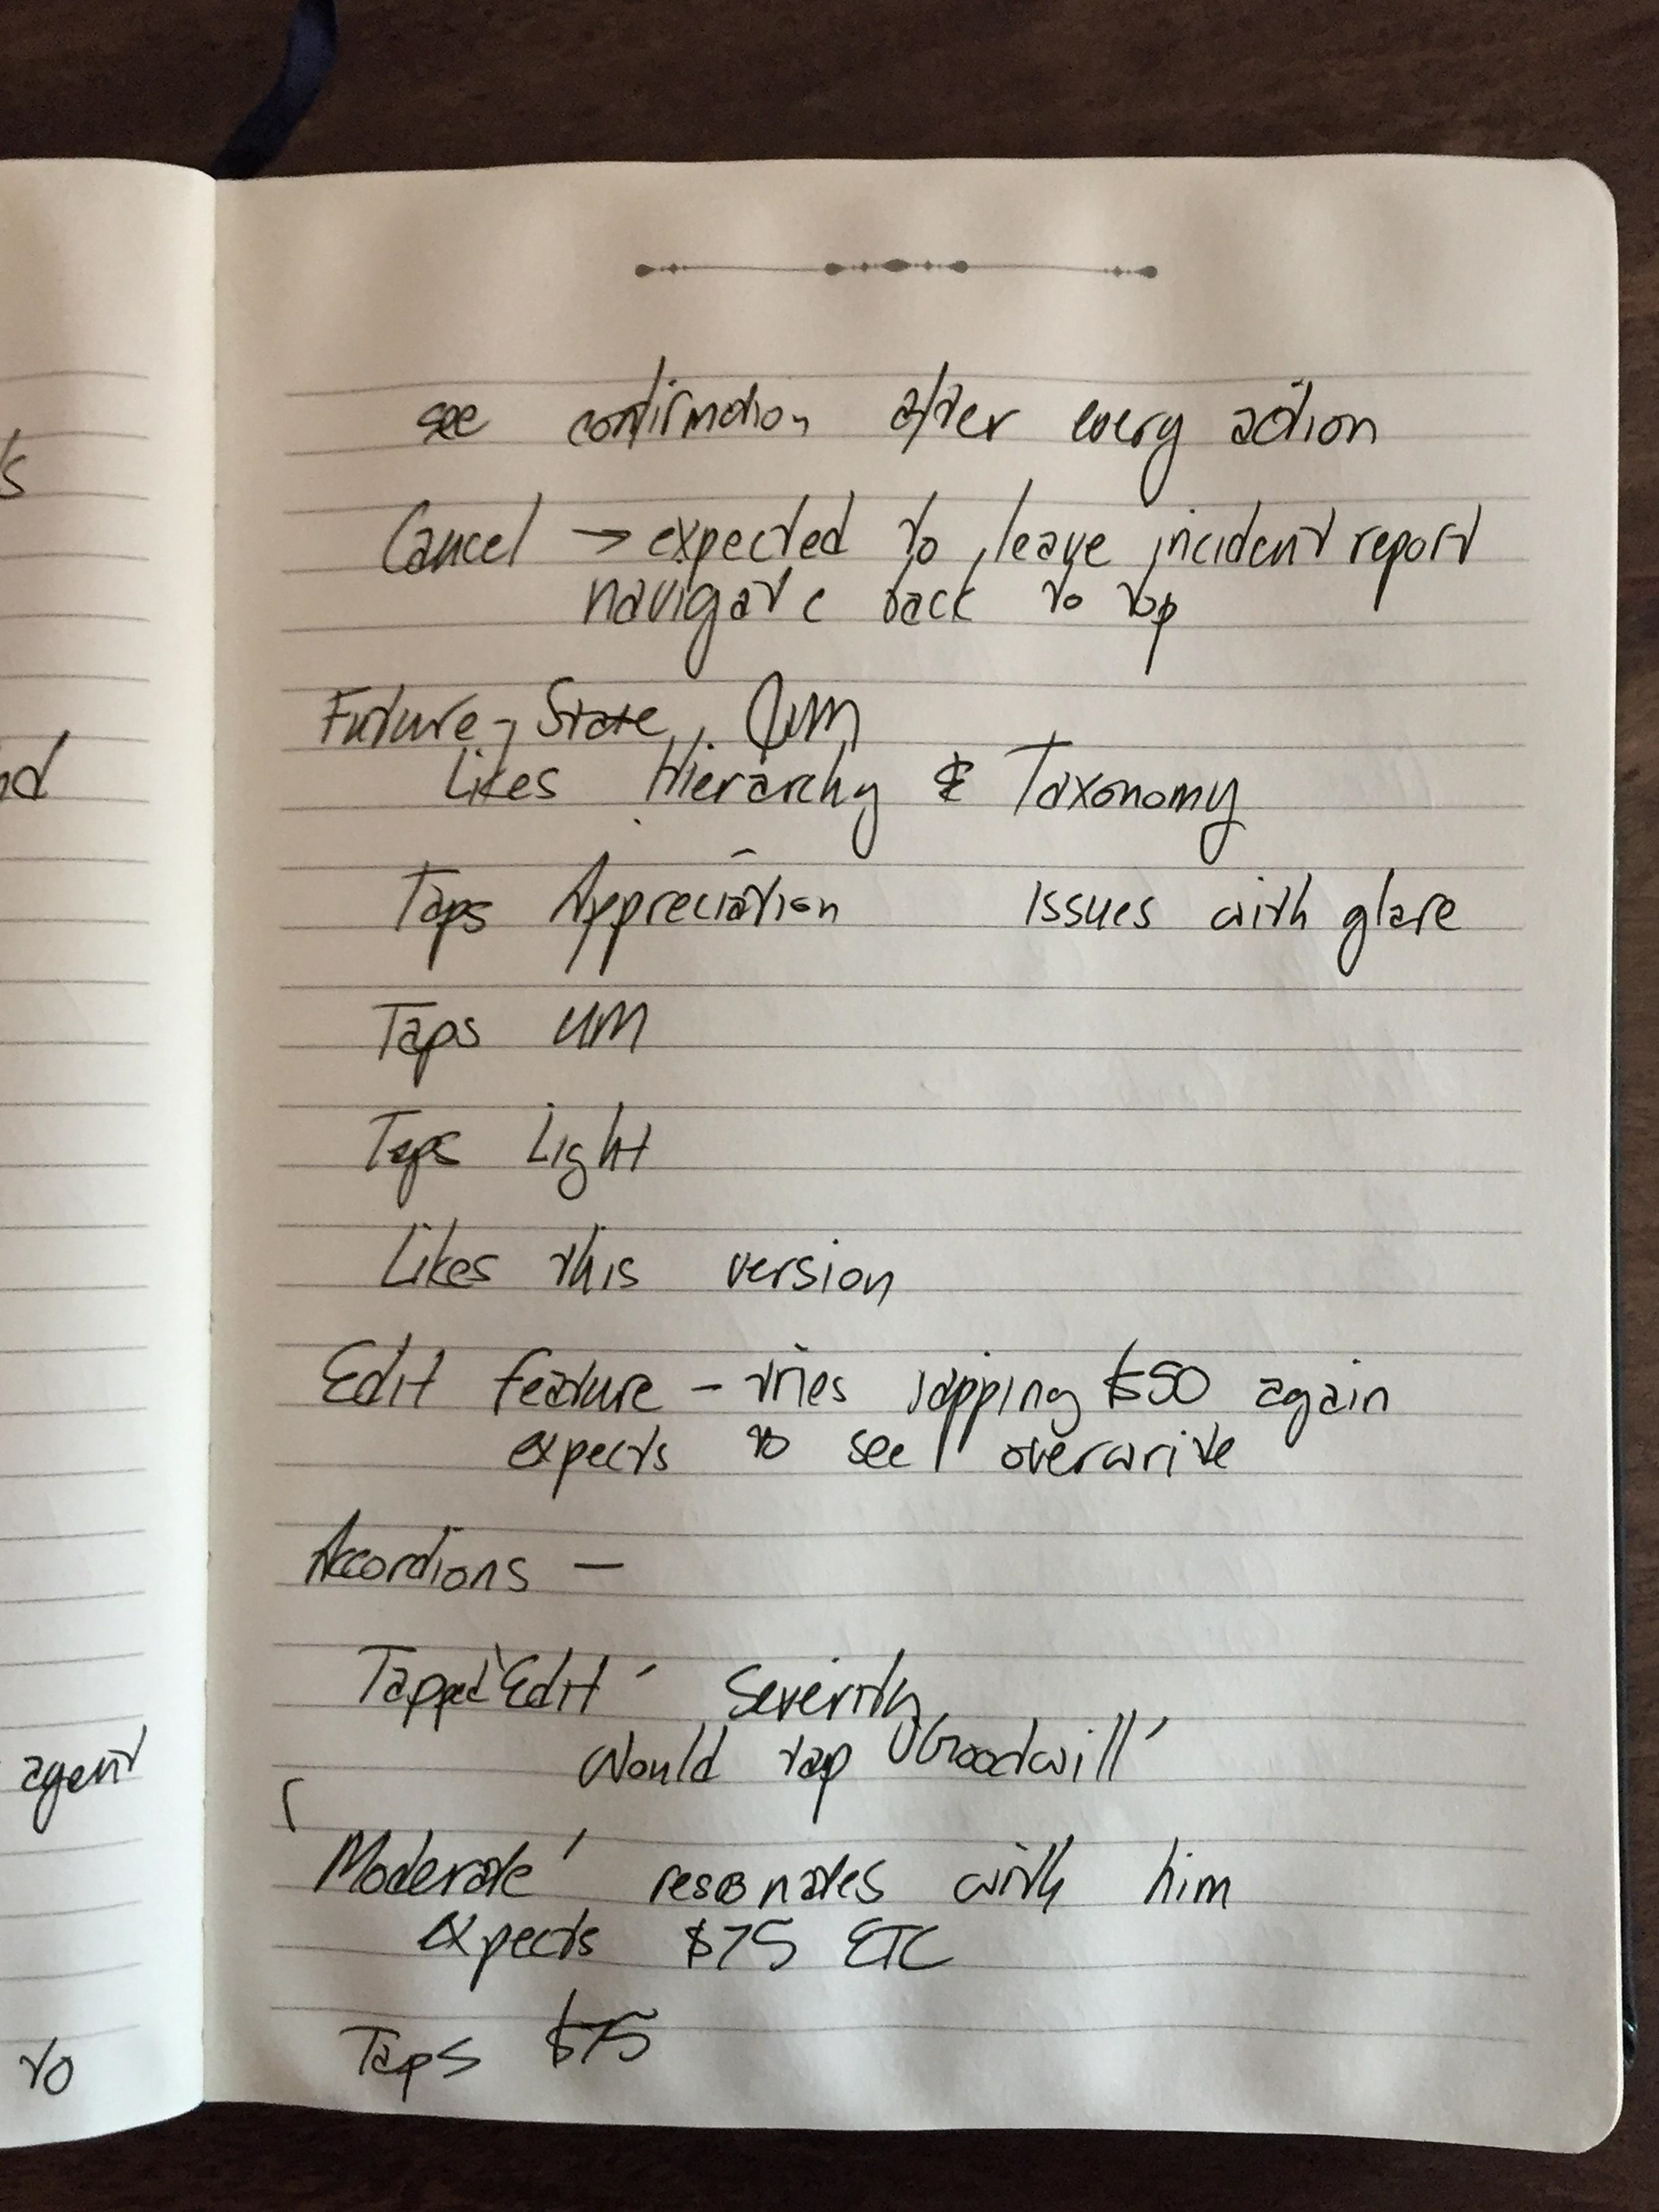 see confirmation after every action
Cancel → expected to leave incident report
navigate back to top
Future-State, QUM
Likes Hierarchy & Taxonomy
Taps Appreciation Issues with glare
Taps UM
Taps Light
Likes this version
Edit feature - tries tapping $50 again
expects to see overwrite
Accordions -
Tapped 'Edit' Severity
Would tap 'Goodwill'
'Moderate' resonates with him
expects $75 ETC
Taps $75
agent
to